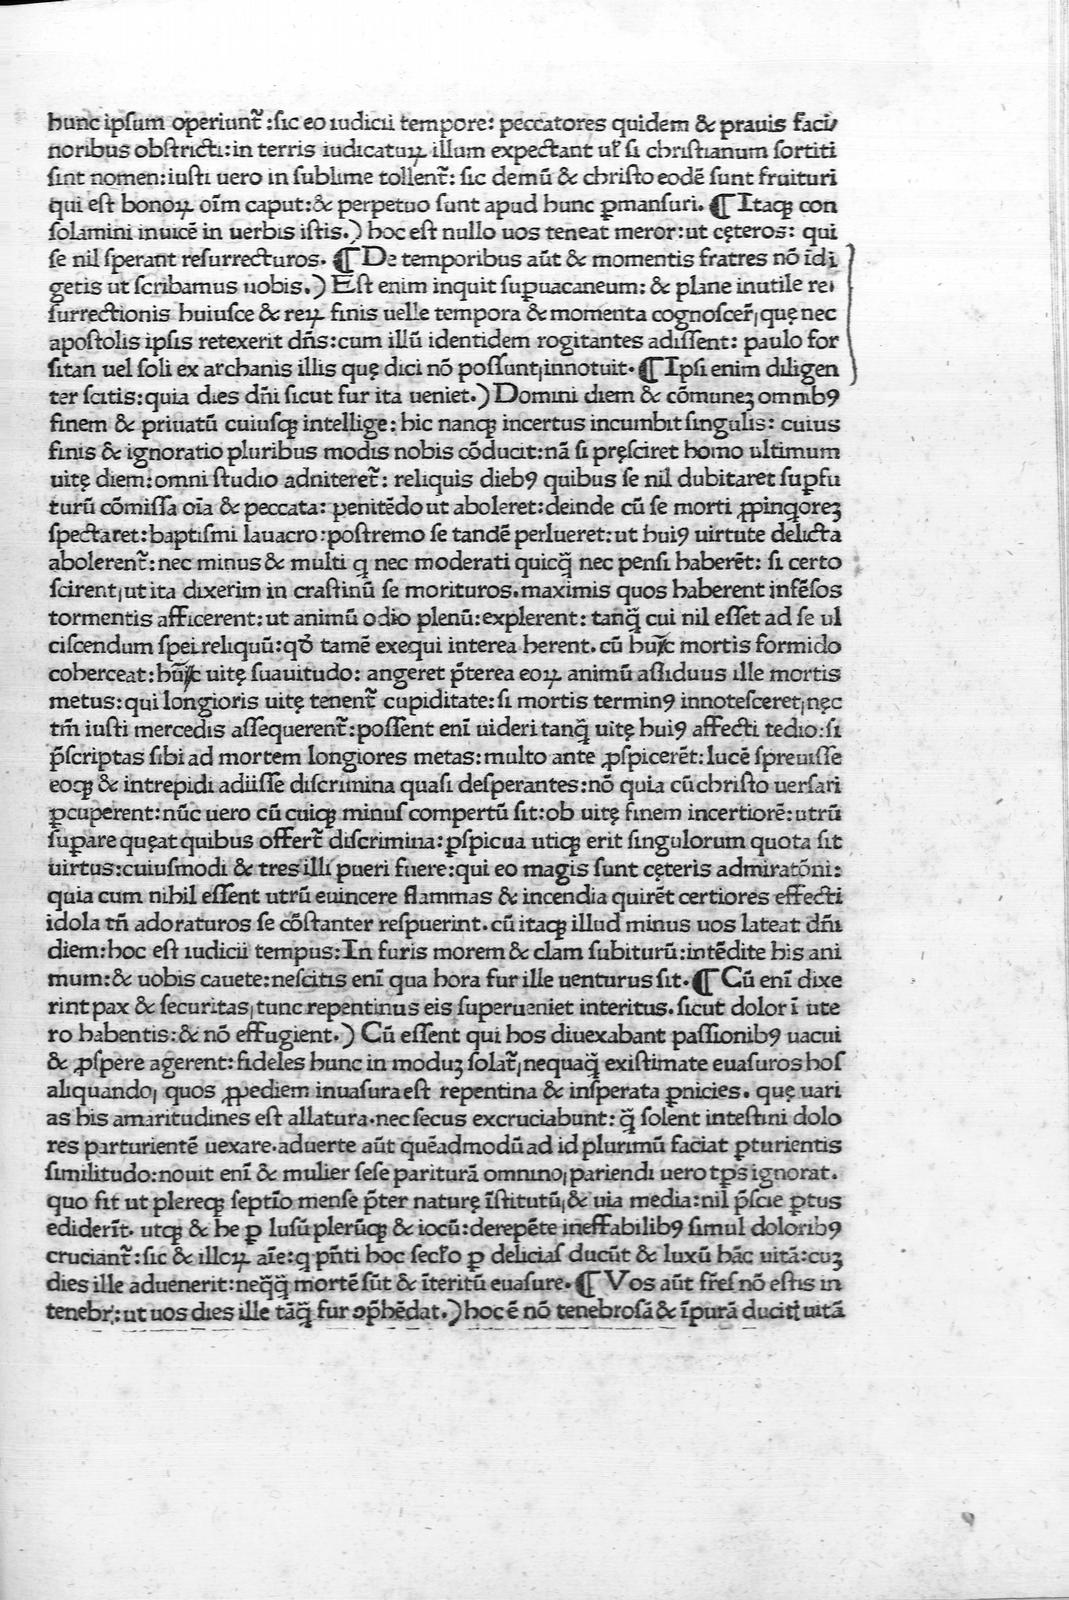 hunc ipsum operiunt᷑ :sic eo iudicii tempore: peccatores quidem & prauis faci/
noribus obstricti:in terris iudicatuꝝ illum expectant uł si christianum sortiti
sint nomen:iusti uero in sublime tollent᷑: sic demū & christo eodē sunt fruituri
qui est bonoꝝ oīm caput:& perpetuo sunt apud hunc ꝑmansuri. ¶ Itaqꝫ con
solamini inuicē in uerbis istis.) hoc est nullo uos teneat meror:ut cęteros: qui
se nil sperant resurrecturos. ¶ De temporibus aūt & momentis fratres nō īdi
getis ut scribamus uobis.) Est enim inquit suꝑuacaneum: & plane inutile re/
surrectionis huiusce & reꝝ finis uelle tempora & momenta cognoscer᷑, quę nec
apostolis ipsis retexerit dñs:cum illū identidem rogitantes adissent: paulo for
sitan uel soli ex archanis illis quę dici nō possunt,innotuit. ¶ Ipsi enim diligen
ter scitis:quia dies dñi sicut fur ita ueniet.) Domini diem & cōmuneꝫ omnibꝰ
finem & priuatū cuiusqꝫ intellige: hic nanqꝫ incertus incumbit singulis: cuius
finis & ignoratio pluribus modis nobis cōducit:nā si pręsciret homo ultimum
uitę diem:omni studio adniteret᷑: reliquis diebꝰ quibus se nil dubitaret suꝑfu
turū cōmissa oīa & peccata: penitēdo ut aboleret:deinde cū se morti ꝓpinqoreꝫ
spectaret:baptismi lauacro:postremo se tandē perlueret:ut huiꝰ uirtute delicta
abolerent᷑: nec minus & multi q nec moderati quicq̄ nec pensi haberēt: si certo
scirent,ut ita dixerim in crastinū se morituros.maximis quos haberent infēsos
tormentis afficerent:ut animū odio plenū:explerent: tanq̄ cui nil esset ad se ul
ciscendum spei reliquū:qđ tamē exequi interea herent. cū mortis formido
coherceat: uitę suauitudo: angeret p̄terea eoꝝ animū assiduus ille mortis
metus:qui longioris uitę tenent᷑ cupiditate:si mortis terminꝰ innotesceret,nęc
tm̄ iusti mercedis assequerent᷑:possent enī uideri tanq̄ uitę huiꝰ affecti tedio:si
p̄scriptas sibi ad mortem longiores metas:multo ante ꝓspicerēt:lucē spreuisse
eoqꝫ & intrepidi adiisse discrimina quasi desperantes:nō quia cū christo uersari
ꝑcuperent:nūc uero cū cuiqꝫ minus compertū sit:ob uitę finem incertiorē:utrū
suꝑare quęat quibus offert᷑ discrimina:ꝑspicua utiqꝫ erit singulorum quota sit
uirtus:cuiusmodi & tres illi pueri fuere:qui eo magis sunt cęteris admiratōni:
quia cum nihil essent utrū euincere flammas & incendia quirēt certiores effecti
idola tñ adoraturos se cōstanter respuerint.cū itaqꝫ illud minus uos lateat dñi
diem:hoc est iudicii tempus:In furis morem & clam subiturū:intēdite his ani
mum:& uobis cauete:nescitis enī qua hora fur ille uenturus sit.¶ Cū enī dixe
rint pax & securitas,tunc repentinus eis superueniet interitus. sicut dolor ī ute
ro habentis:& nō effugient.) Cū essent qui hos diuexabant passionibꝰ uacui
& ꝓspere agerent:fideles hunc in moduꝫ solat᷑,nequaq̄ existimate euasuros hos
aliquando, quos ꝓpediem inuasura est repentina & insperata ꝑnicies. quę uari
as his amaritudines est allatura.nec secus excruciabunt:q̄ solent intestini dolo
res parturientē uexare.aduerte aūt quēadmodū ad id plurimū faciat ꝑturientis
similitudo:nouit enī & mulier sese pariturā omnino,pariendi uero tp̄s ignorat.
quo fit ut plereqꝫ septīo mense p̄ter naturę īstitutū,& uia media:nil p̄scie ꝑtus
ediderīt. utqꝫ & he ꝑ lusū plerūqꝫ & iocū:derepēte ineffabilibꝰ simul doloribꝰ
cruciant᷑:sic & illoꝝ aīe:q pñti hoc secło ꝑ delicias ducūt & luxū hāc uitā:cuꝫ
dies ille aduenerit:neq̄q̄ mortē sūt & īteritū euasure.¶ Vos aūt fr̄es nō estis in
tenebr᷑:ut uos dies ille tāq̄ fur ↄp̄hēdat.) hoc ē nō tenebrosā & īpurā ducitī uitā